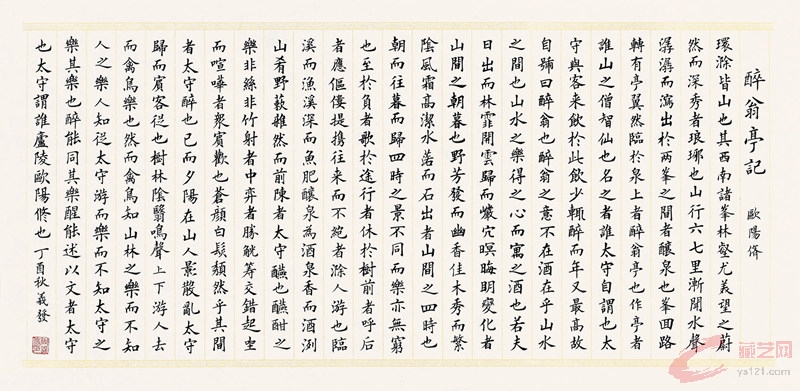 醉翁亭記 歐陽脩
環滁皆山也其西南諸峯林壑尤美望之蔚
然而深秀者琅琊也山行六七里漸聞水聲
潺潺而瀉出於兩峯之間者釀泉也峯回路
轉有亭翼然臨於泉上者醉翁亭也作亭者
誰山之僧智仙也名之者誰太守自謂也太
守與客來飲於此飲少輒醉而年又最高故
自號曰醉翁也醉翁之意不在酒在乎山水
之間也山水之樂得之心而寓之酒也若夫
日出而林霏開雲歸而巖穴暝晦明變化者
山間之朝暮也野芳發而幽香佳木秀而繁
陰風霜高潔水落而石出者山間之四時也
朝而往暮而歸四時之景不同而樂亦無窮
也至於負者歌於途行者休於樹前者呼后
者應傴僂提携往來而不絕者滁人游也臨
溪而漁溪深而魚肥釀泉為酒泉香而酒洌
山肴野蔌雜然而前陳者太守醼也醼酣之
樂非絲非竹射者中弈者勝觥籌交錯起坐
而喧嘩者衆賓歡也蒼顏白髮頹然乎其間
者太守醉也已而夕陽在山人影散亂太守
歸而賓客從也樹林陰翳鳴聲上下游人去
而禽鳥樂也然而禽鳥知山林之樂而不知
人之樂人知從太守游而樂而不知太守之
樂其樂也醉能同其樂醒能述以文者太守
也太守謂誰廬陵歐陽脩也丁酉秋義發
藏艺网
ys121.com